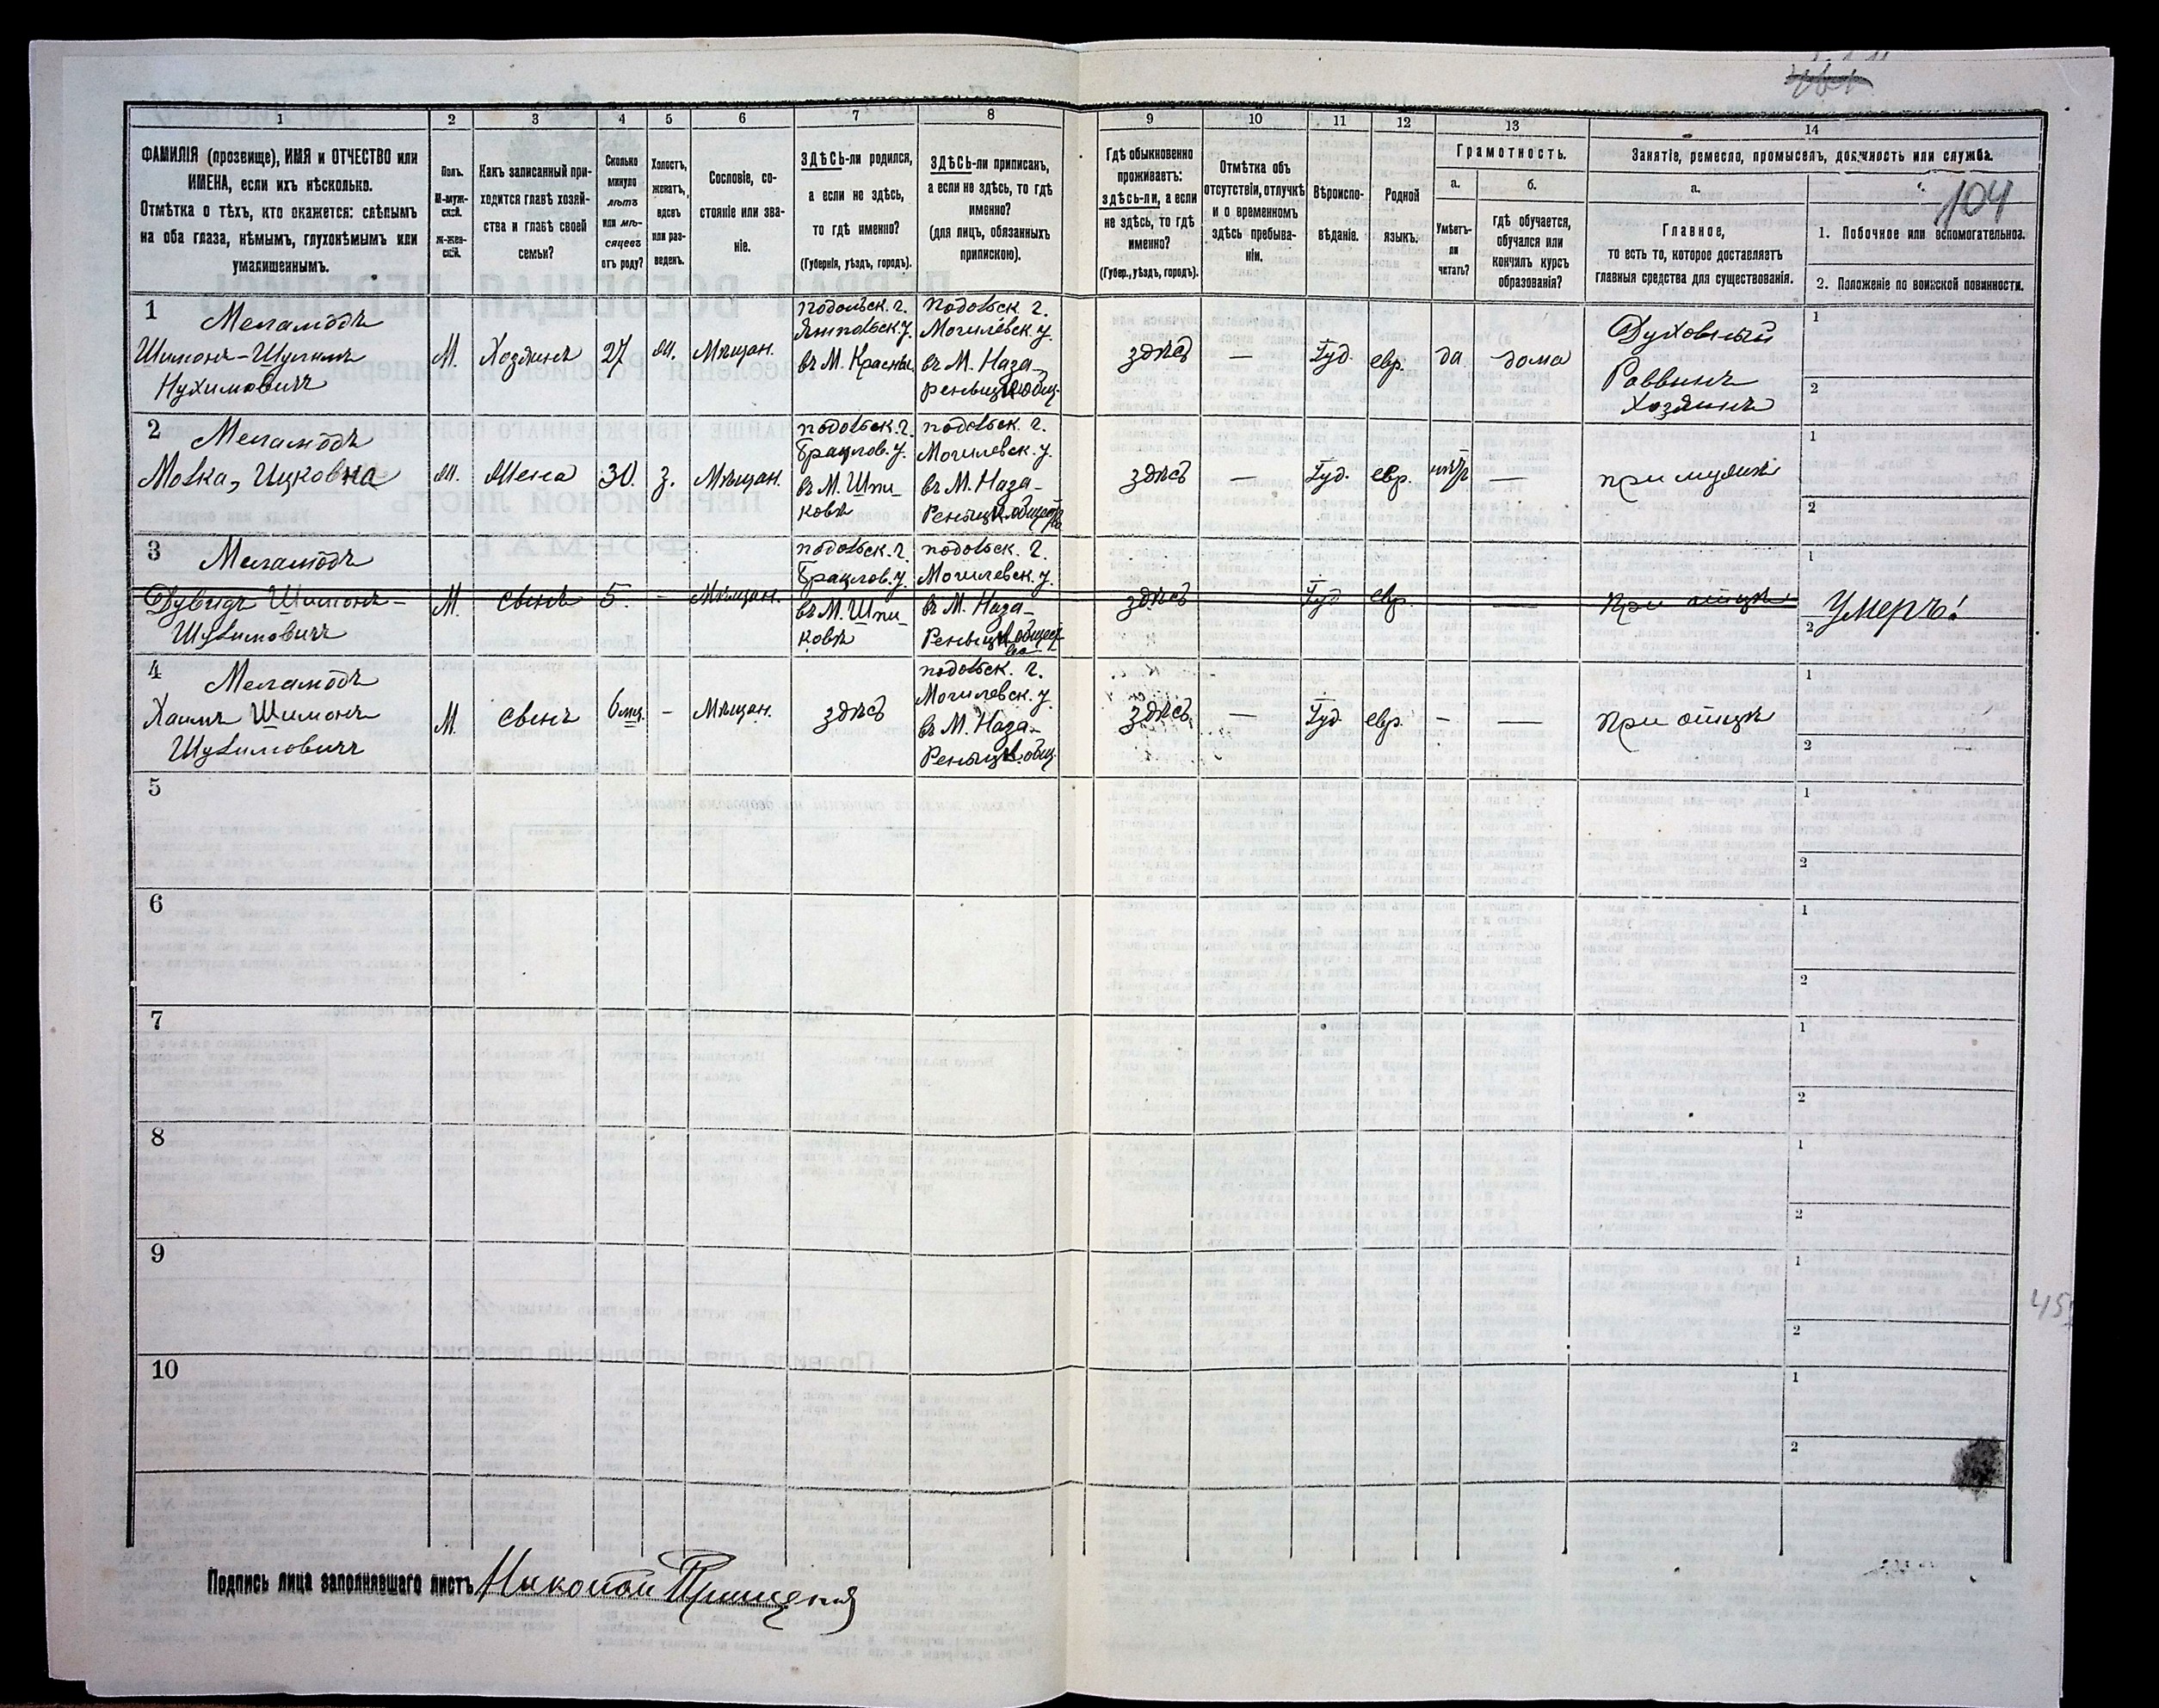 104
1 2 3 4 5 6 7 8 9 10 11 12 13 14
ФАМИЛІЯ (прозвище), ИМЯ и ОТЧЕСТВО или
ИМЕНА, если ихъ нѣсколько.
Отмѣтка о тѣхъ, кто окажется: слѣпымъ
на оба глаза, нѣмымъ, глухонѣмымъ или
умалишеннымъ.
Полъ.
М-муж-
ской.
Ж-жен-
скій.
Какъ записанный при-
ходится главѣ хозяй-
ства и главѣ своей
семьи?
Сколько
минуло
лѣтъ
или мѣ-
сяцевъ
отъ роду?
Холостъ,
женатъ,
вдовъ
или раз-
веденъ.
Сословіе, со-
стояніе или зва-
ніе.
ЗДѢСЬ-ли родился,
а если не здѣсь,
то гдѣ именно?
(Губернія, уѣздъ, городъ).
ЗДѢСЬ-ли приписанъ,
а если не здѣсь, то гдѣ
именно?
(для лицъ, обязанныхъ
припискою).
Гдѣ обыкновенно
проживаетъ:
здѣсь-ли, а если
не здѣсь, то гдѣ
именно?
(Губер., уѣздъ, городъ).
Отмѣтка объ
отсутствіи, отлучкѣ
и о временномъ
здѣсь пребыва-
ніи.
Вѣроиспо-
вѣданіе.
Родной
языкъ.
Грамотность.
а.
Умѣетъ-
ли
читать?
б.
гдѣ обучается,
обучался или
кончилъ курсъ
образованія?
Занятіе, ремесло, промыселъ, должность или служба.
а.
Главное,
то есть то, которое доставляетъ
главныя средства для существованія.
1. Побочное или вспомогательное.
2. Положеніе по воинской повинности.
1
Меламодъ
Шимонъ-Шулимъ
Нухимовичъ
М.
Хозяинъ
27
Мѣщан.
Подольск. г.
Ямпольск. у.
въ М. Красны
Подольск. г.
Могилевск. у.
въ М. Наза-
здѣсь
—
Іуд.
евр.
да
дома
Духовный
Раввинъ
Хозяинъ
1
2
2
Меламодъ
Молка, Ицковна
М.
Жена
30.
з.
Мѣщан.
подольск. г.
Брацлов. у.
въ М. Шпи-
ковъ
подольск. г.
Могилевск. у.
въ М. Наза-
здѣсь
—
Іуд.
евр.
—
при мужѣ
1
2
3
Меламодъ
Дувидъ Шимонъ-
Шулимовичъ
М.
сынъ
5.
-
Мѣщан.
подольск. г.
Брацлов. у.
въ М. Шпи-
ковъ
подольск. г.
Могилевск. у.
въ М. Наза-
здѣсь
Іуд
евр.
—
При отцѣ
1
2
Умеръ!
4
Меламодъ
Хаимъ Шимонъ
Шулимовичъ
М.
сынъ
6 мц.
-
Мѣщан.
здѣсь
подольск. г.
Могилевск. у.
въ М. Наза-
здѣсь
—
Іуд.
евр.
-
—
при отцѣ
1
2
5
1
2
6
1
2
7
1
2
8
1
2
9
1
2
10
1
2
Подпись лица заполнявшаго листъ